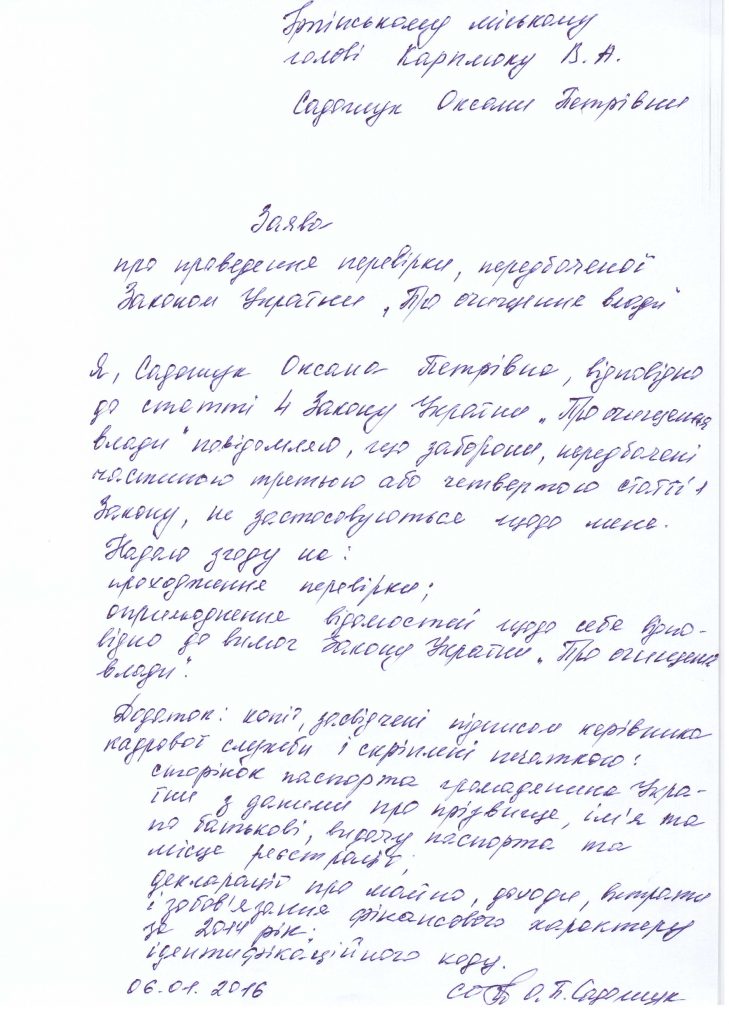 Ірпінському міському
голові Карплюку В. А.
Садощук Оксани Петрівни
Заява
про проведення перевірки, передбаченої
Законом України „Про очищення влади"
Я, Садощук Оксана Петрівна, відповідно
до статті 4 Закону України „Про очищення
влади" повідомляю, що заборони, передбачені
частиною третьою або четвертою статті 1
Закону, не застосовуються щодо мене.
Надаю згоду на:
проходження перевірки;
оприлюднення відомостей щодо себе відпо-
відно до вимог Закону України „Про очищення
влади".
Додаток: копії, засвідчені підписом керівника
кадрової служби і скріплені печаткою:
сторінок паспорта громадянина Укра-
їни з даними про прізвище, ім'я та
по батькові, видачу паспорта та
місце реєстрації;
декларації про майно, доходи, витрати
і зобов'язання фінансового характеру
за 2014 рік:
ідентифікаційного коду.
06.01.2016 О.П.Садощук